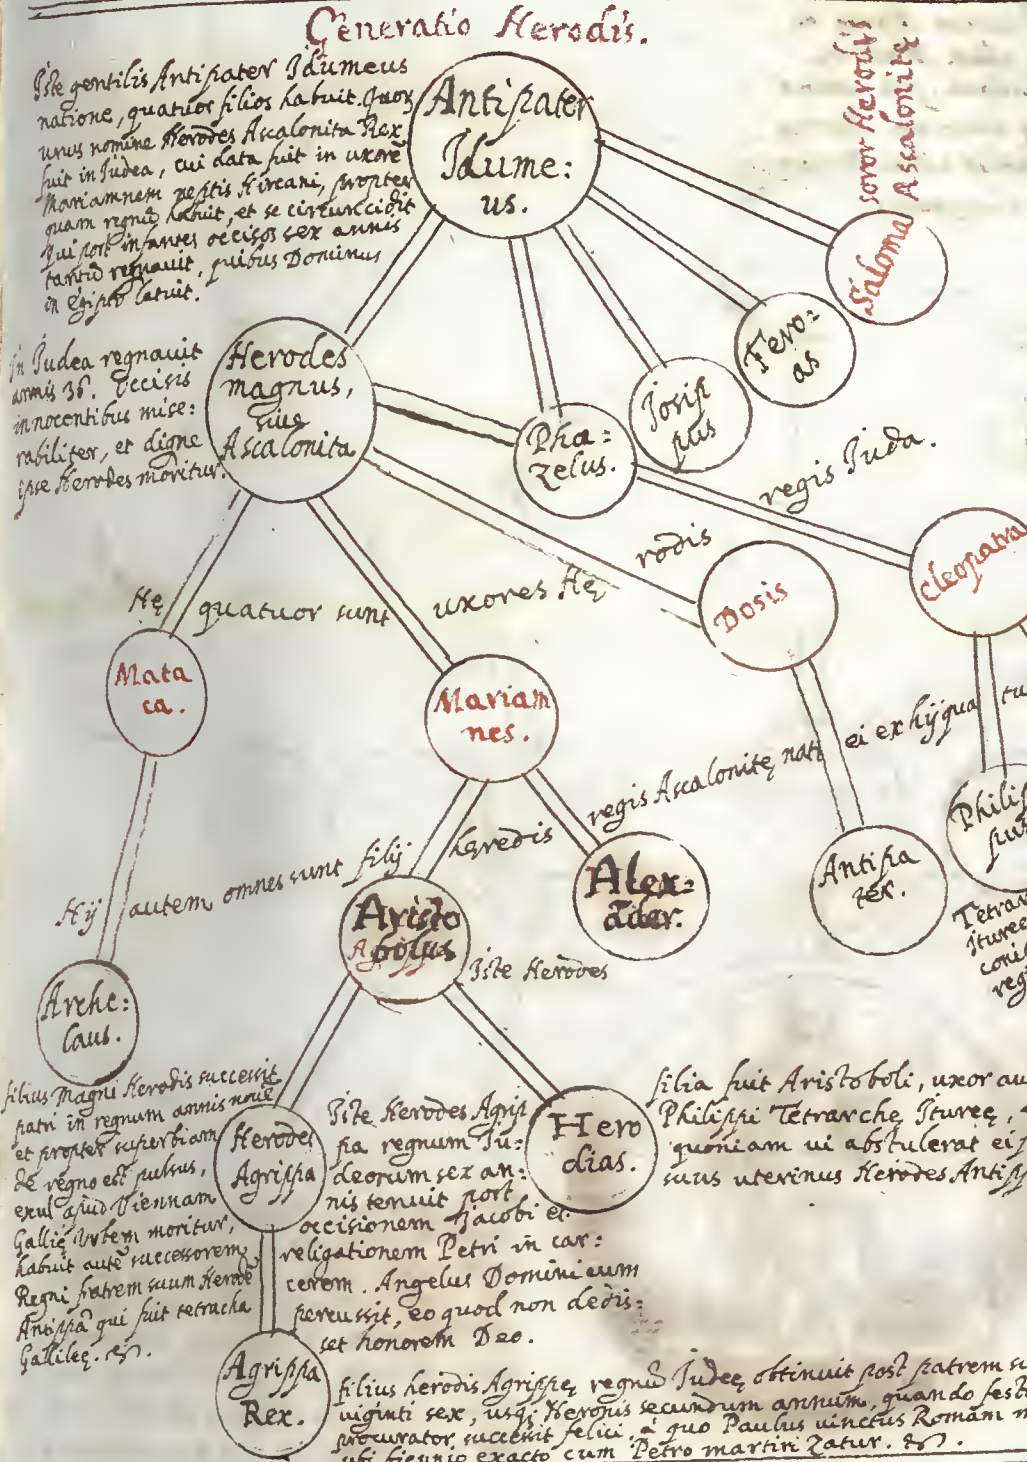 Generatio Herodis.
Iste gentilis Antipater Idumeus
natione, quatuor filios habuit. Quor
unus nomine Herodes Ascalonita Rex
fuit in Iudea, cui data fuit in uxorē
Mariamnem neptis Hircani, propter
quam regnū habuit, et se circuncidit
Qui post infantes occisos sex annis
tantū regnauit, quibus Dominus
in Egipto latuit.
Antipater
Idume:
us.
soror Herodis
Ascalonitę.
Saloma
Fero:
as
Iosip
pus
Pha:
zelus.
Herodes
magnus,
siue
Ascalonita
In Iudea regnauit
annis 36. Occisis
innocentibus mise:
rabiliter, et digne
ipse Herodes moritur.
Hę quatuor sunt uxores Hę rodis regis Iuda.
Mata
ca.
Mariam
nes.
Dosis
Cleopatra
Hij autem omnes sunt filij hęredis regis Ascalonitę nati ei ex hijqua tu
Arche:
laus.
Aristo
bolus
Alex:
āder.
Antipa
ter.
Philip
pus
Tetrar
Ituree
reg
filius Magni Herodis successit
patri in regnum annis nouē
et propter superbiam
de regno est pulsus,
exul apud Viennam
Gallię Vrbem moritur,
habuit autē successorem
Regni fratrem suum Herodē
Antippā qui fuit tetracha
Gallileę. &.
Herodes
Agrippa
Iste Herodes Agrip
pa regnum Iu:
deorum sex an:
nis tenuit post
occisionem Jacobi et
religationem Petri in car:
cerem. Angelus Domini eum
percussit, eo quod non dedis:
set honorem Deo.
Iste Herodes
Hero
dias.
filia fuit Aristoboli, uxor au
Philippi Tetrarchę Ituree,
quoniam ui abstulerat ei
suus uterinus Herodes Antip
Agrippa
Rex.
filius herodis Agrippę regnū Iudeę obtinuit post patrem su
viginti sex, usq; Neronis secundum annum, quando fest
procurator successit felici, à quo Paulus uinctus Romam m
ubi biennio exacto cum Petro martiri zatur. &.